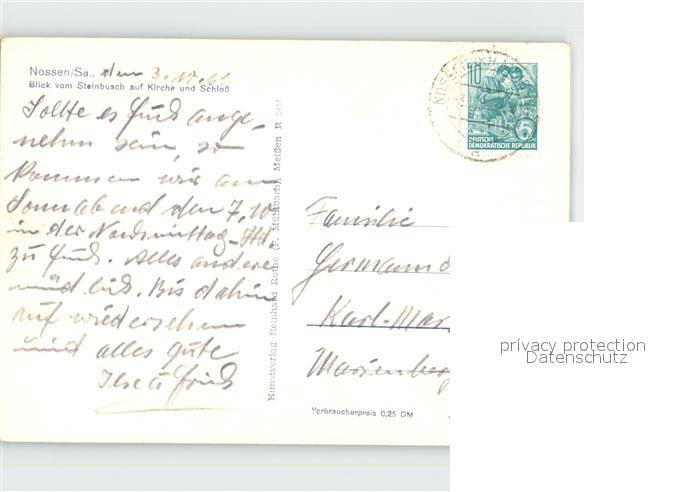 Nossen/Sa., den 3.10.61
Blick vom Steinbusch auf Kirche und Schloß
Sollte es Euch ange-
nehm sein, so
kommen wir am
Sonnabend den 7.10
in der Nachmittag-Std.
zu Euch. Alles andere
mündlich. Bis dahin
auf wiedersehen
und alles gute
Ilse u
Kunstverlag Reinhard Rothe (P. Mühlbach), Meißen R
10
5
DEUTSCHE
DEMOKRATISCHE REPUBLIK
NOSSEN
Familie
Germann
Karl-Mar
Marienberg
Verbraucherpreis 0,25 DM
privacy protection
Datenschutz